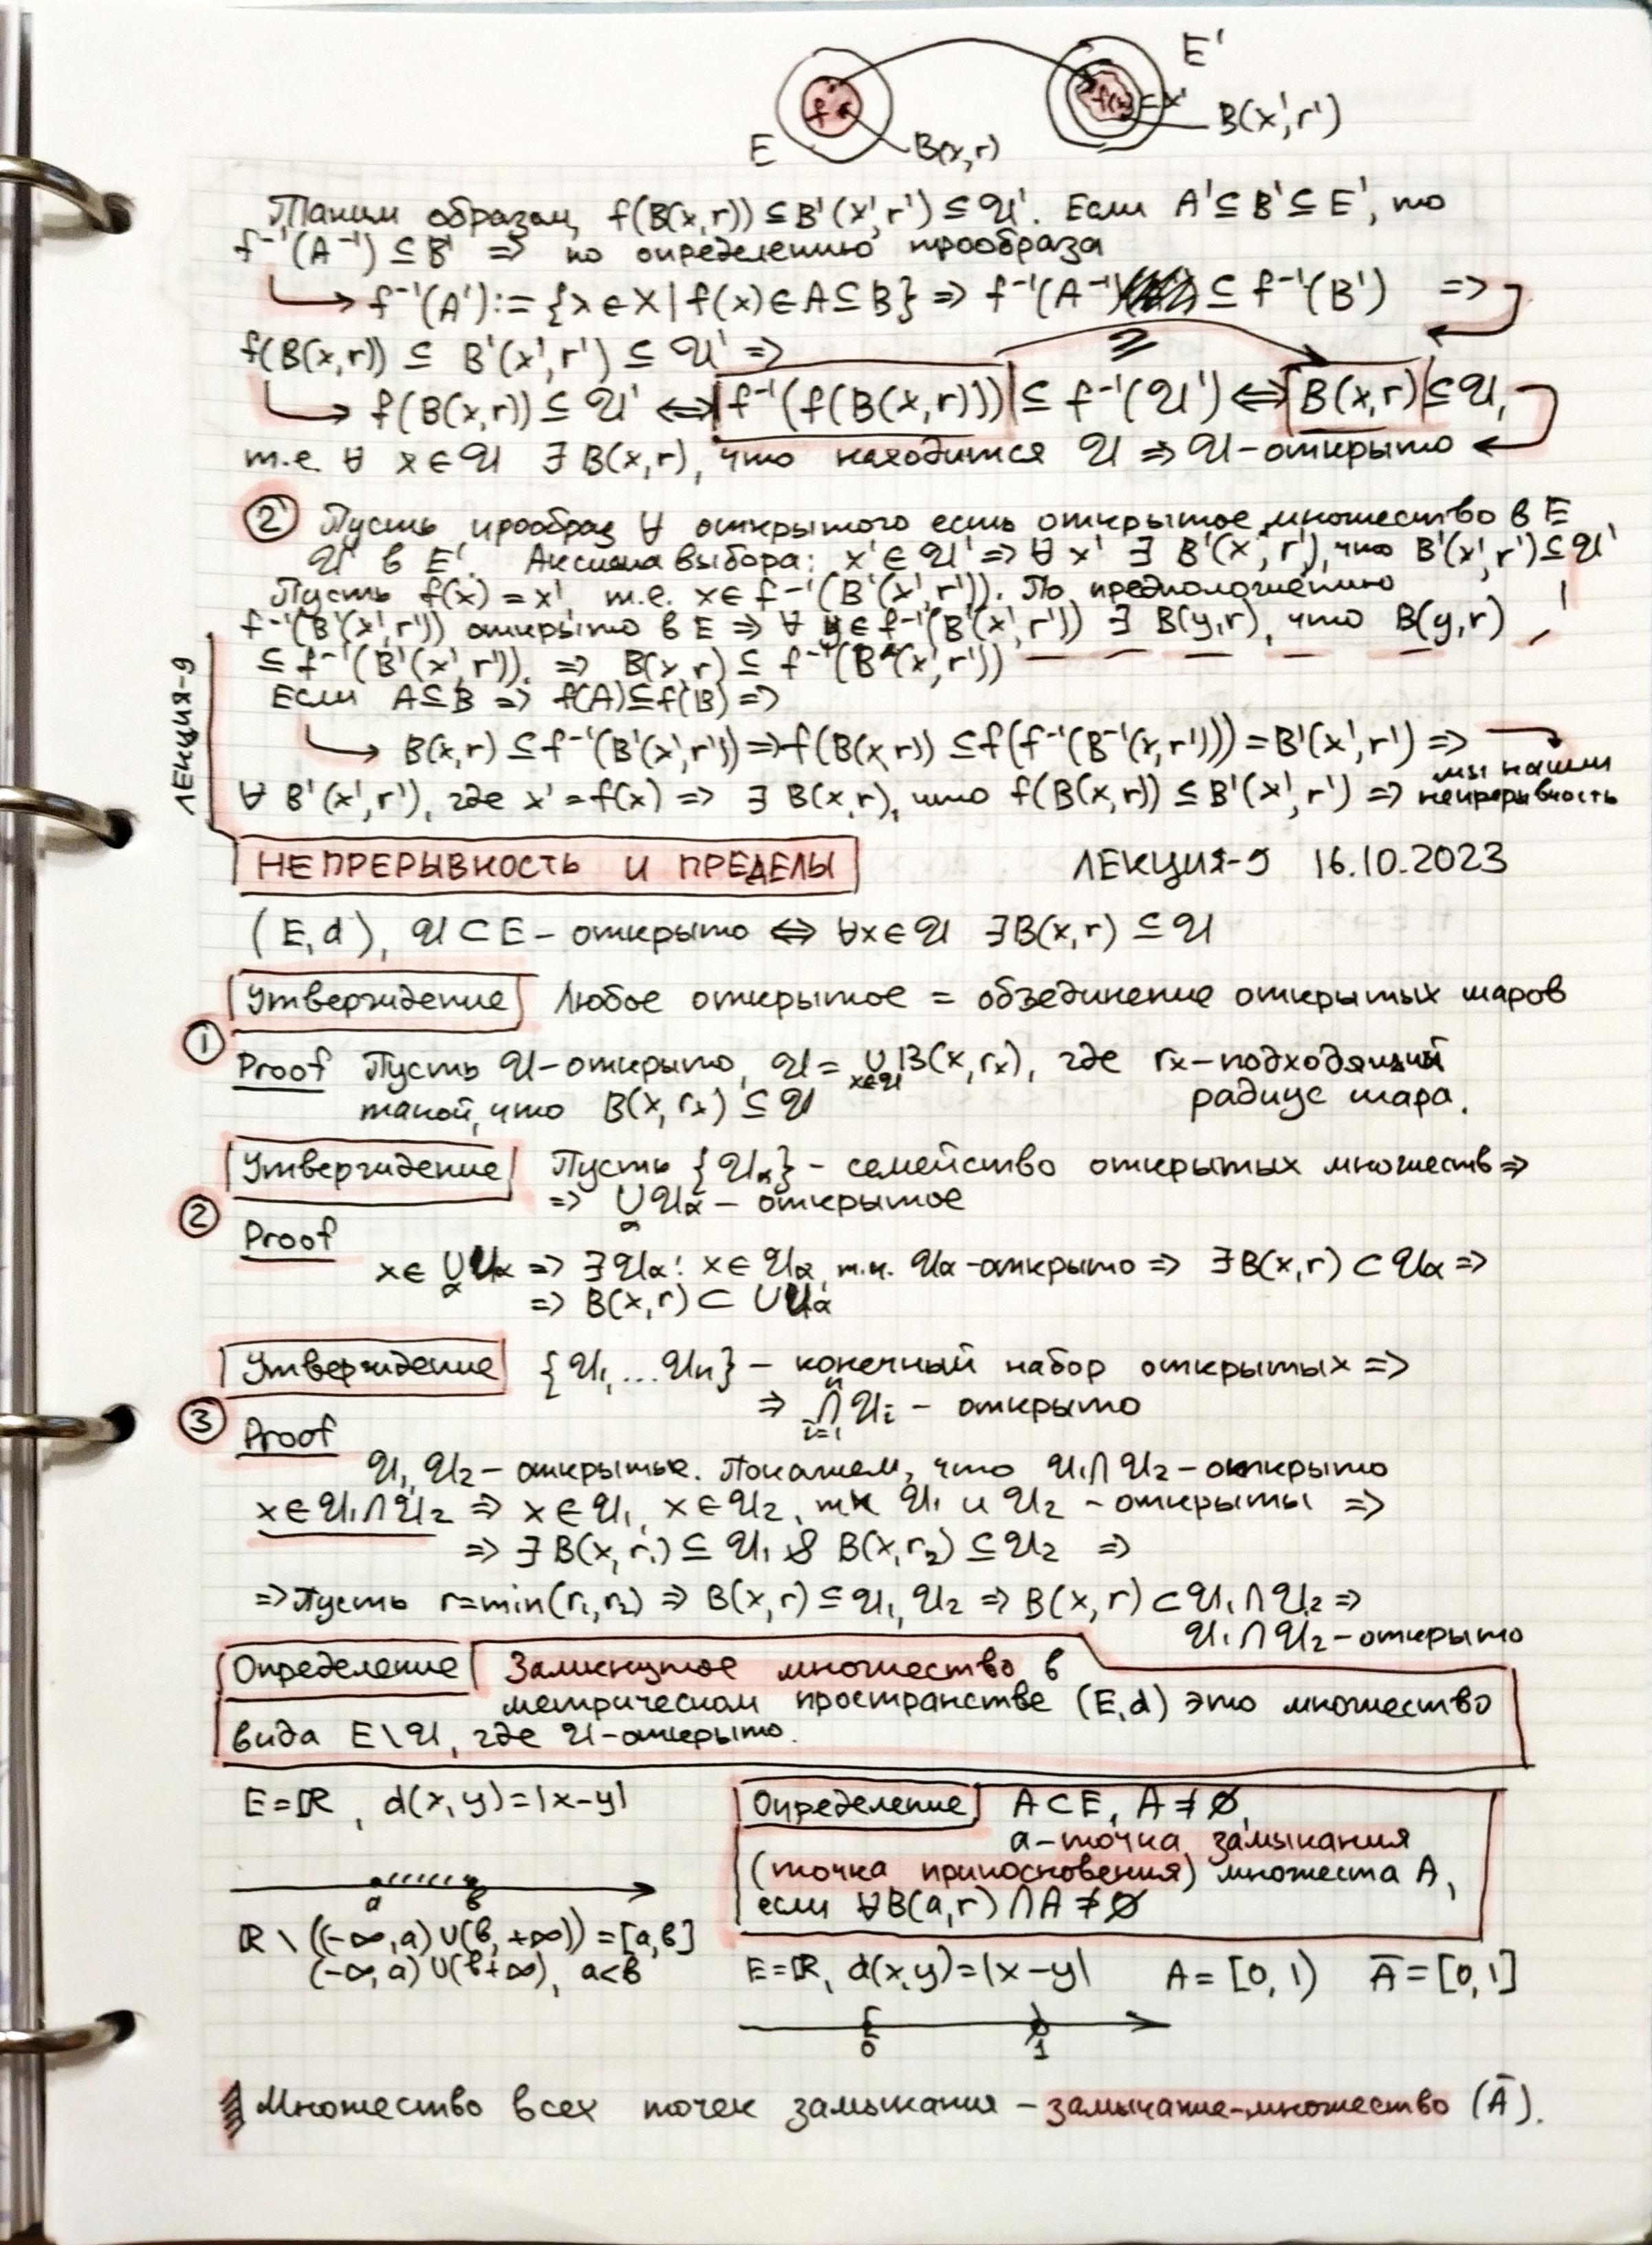 E'
f(x) = x'
B(x', r')
E
B(x, r)
Таким образом, f(B(x,r)) ⊆ B'(x',r') ⊆ U'. Если A' ⊆ B' ⊆ E', то
f⁻¹(A⁻¹) ⊆ B' => по определению прообраза
f⁻¹(A') := {x ∈ X | f(x) ∈ A ⊆ B} => f⁻¹(A⁻¹) ⊆ f⁻¹(B') =>
f(B(x,r)) ⊆ B'(x',r') ⊆ U' =>
f(B(x,r)) ⊆ U' <=> f⁻¹(f(B(x,r))) ⊆ f⁻¹(U') <=> B(x,r) ⊆ U,
т.е. ∀ x ∈ U ∃ B(x,r), что находится U => U – открыто
② Пусть прообраз ∀ открытого есть открытое множество в E
U' в E'. Аксиома выбора: x' ∈ U' => ∀ x' ∃ B'(x', r'), что B'(x',r') ⊆ U'
Пусть f(x) = x', т.е. x ∈ f⁻¹(B'(x',r')). По предположению
f⁻¹(B'(x',r')) открыто в E => ∀ y ∈ f⁻¹(B'(x',r')) ∃ B(y,r), что B(y,r)
⊆ f⁻¹(B'(x',r')). => B(x,r) ⊆ f⁻¹(B'(x',r'))
Если A ⊆ B => f(A) ⊆ f(B) =>
B(x,r) ⊆ f⁻¹(B'(x',r')) => f(B(x,r)) ⊆ f(f⁻¹(B⁻¹(x,r'))) = B'(x',r') =>
∀ B'(x',r'), где x' = f(x) => ∃ B(x,r), что f(B(x,r)) ⊆ B'(x',r') => мы нашли непрерывность
ЛЕКЦИЯ-9
НЕПРЕРЫВНОСТЬ И ПРЕДЕЛЫ ЛЕКЦИЯ-9 16.10.2023
(E,d), U ⊂ E – открыто <=> ∀x ∈ U ∃B(x,r) ⊆ U
Утверждение Любое открытое = объединение открытых шаров
①
Proof Пусть U – открыто, U = ∪ B(x, rx), где rx – подходящий
x∈U
такой, что B(x, rx) ⊆ U радиус шара.
Утверждение Пусть {Uα} – семейство открытых множеств =>
=> ∪ Uα – открытое
α
②
Proof
x ∈ ∪ Uα => ∃ Uα: x ∈ Uα, т.к. Uα – открыто => ∃ B(x,r) ⊂ Uα =>
α
=> B(x,r) ⊂ ∪Uα
Утверждение {U₁, ... Un} – конечный набор открытых =>
n
=> ∩ Ui – открыто
i=1
③ Proof
U₁, U₂ – открытые. Покажем, что U₁ ∩ U₂ – открыто
x ∈ U₁ ∩ U₂ => x ∈ U₁, x ∈ U₂, тк U₁ и U₂ – открыты =>
=> ∃ B(x, r₁) ⊆ U₁ & B(x, r₂) ⊆ U₂ =>
=> Пусть r = min(r₁, r₂) => B(x, r) ⊆ U₁, U₂ => B(x, r) ⊂ U₁ ∩ U₂ =>
U₁ ∩ U₂ – открыто
Определение Замкнутое множество в
метрическом пространстве (E,d) это множество
вида E \ U, где U – открыто.
E = ℝ, d(x,y) = |x-y|
a в
ℝ \ ((-∞, a) ∪ (в, +∞)) = [a, в]
(-∞, a) ∪ (в+∞), a < в
Определение A ⊂ E, A ≠ ∅,
a – точка замыкания
(точка прикосновения) множеста A,
если ∀B(a,r) ∩ A ≠ ∅
E = ℝ, d(x,y) = |x-y| A = [0, 1) A̅ = [0, 1]
0 1
Множество всех точек замыкания – замыкание-множество (A̅).